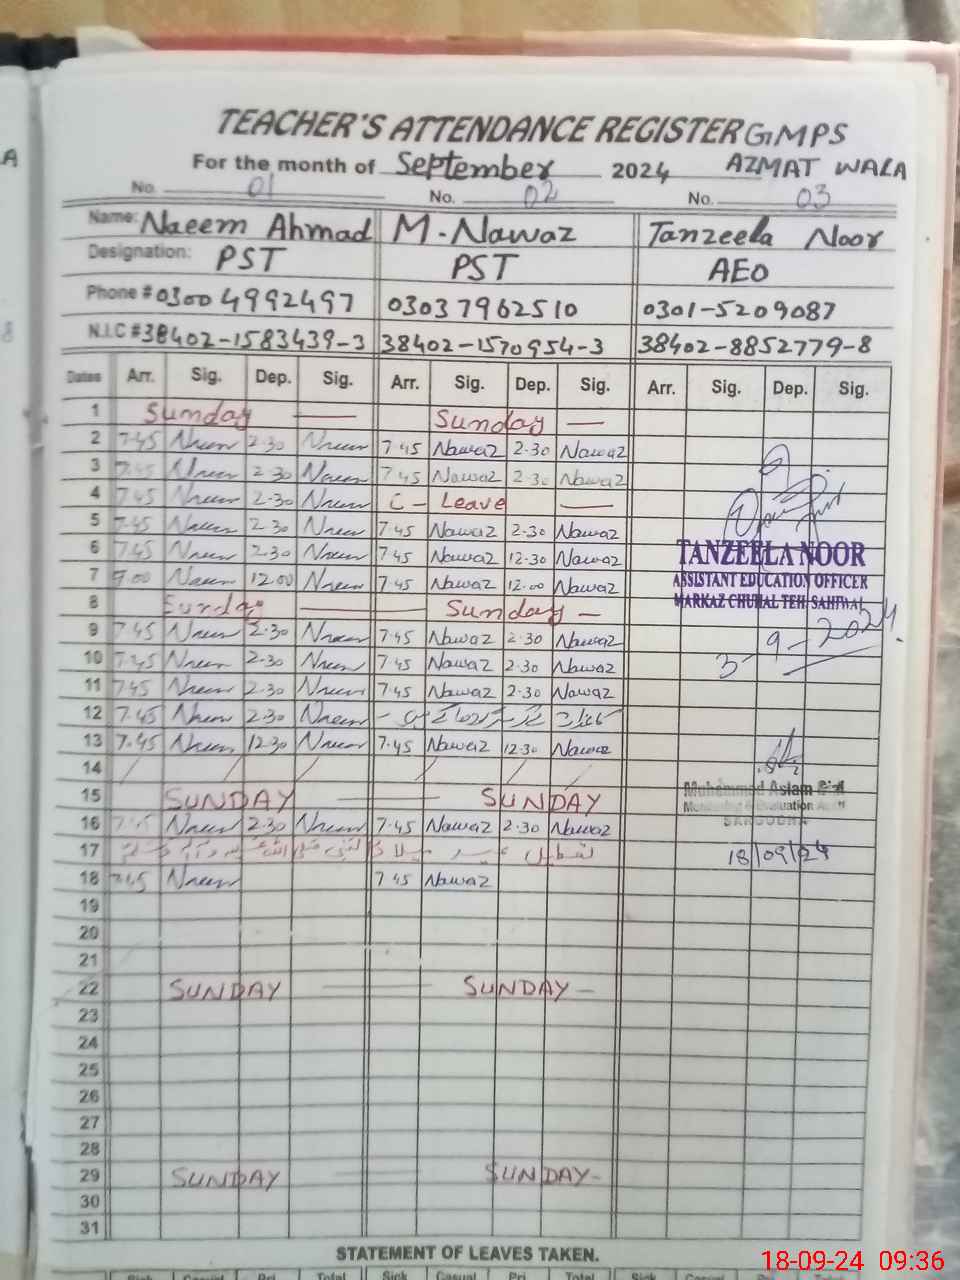 TEACHER'S ATTENDANCE REGISTER GMPS
For the month of September 2024 AZMAT WALA
No. 01 No. 02 No. 03
Name: Naeem Ahmad M. Nawaz Tanzeela Noor
Designation: PST PST AEO
Phone # 0300 4992497 03037962510 0301-5209087
N.I.C # 38402-1583439-3 38402-1570954-3 38402-8852779-8
Dates Arr. Sig. Dep. Sig. Arr. Sig. Dep. Sig. Arr. Sig. Dep. Sig.
1 Sunday — Sunday —
2 7.45 Naeem 2.30 Naeem 7.45 Nawaz 2.30 Nawaz
3 7.45 Naeem 2.30 Naeem 7.45 Nawaz 2.30 Nawaz
4 7.45 Naeem 2.30 Naeem C - Leave —
5 7.45 Naeem 2.30 Naeem 7.45 Nawaz 2.30 Nawaz
6 7.45 Naeem 2.30 Naeem 7.45 Nawaz 12.30 Nawaz
TANZEELA NOOR
7 7.00 Naeem 12.00 Naeem 7.45 Nawaz 12.00 Nawaz
ASSISTANT EDUCATION OFFICER
8 Sunday — Sunday —
MARKAZ CHUHAL TEH SAHIWAL
9 7.45 Naeem 2.30 Naeem 7.45 Nawaz 2.30 Nawaz
3-9-2024
10 7.45 Naeem 2.30 Naeem 7.45 Nawaz 2.30 Nawaz
11 7.45 Naeem 2.30 Naeem 7.45 Nawaz 2.30 Nawaz
12 7.45 Naeem 2.30 Naeem
13 7.45 Naeem 12.30 Naeem 7.45 Nawaz 12.30 Nawaz
14
15 SUNDAY — SUNDAY
Muhammad Aslam
Monitoring & Evaluation
SARGODHA
16 7.45 Naeem 2.30 Naeem 7.45 Nawaz 2.30 Nawaz
17 تعطیل عید میلاد النبی صلی اللہ علیہ وآلہ وسلم
18/09/24
18 7.45 Naeem 7.45 Nawaz
19
20
21
22 SUNDAY — SUNDAY —
23
24
25
26
27
28
29 SUNDAY — SUNDAY —
30
31
STATEMENT OF LEAVES TAKEN.
Sick Casual Pri Total Sick Casual Pri Total Sick Casual
18-09-24 09:36